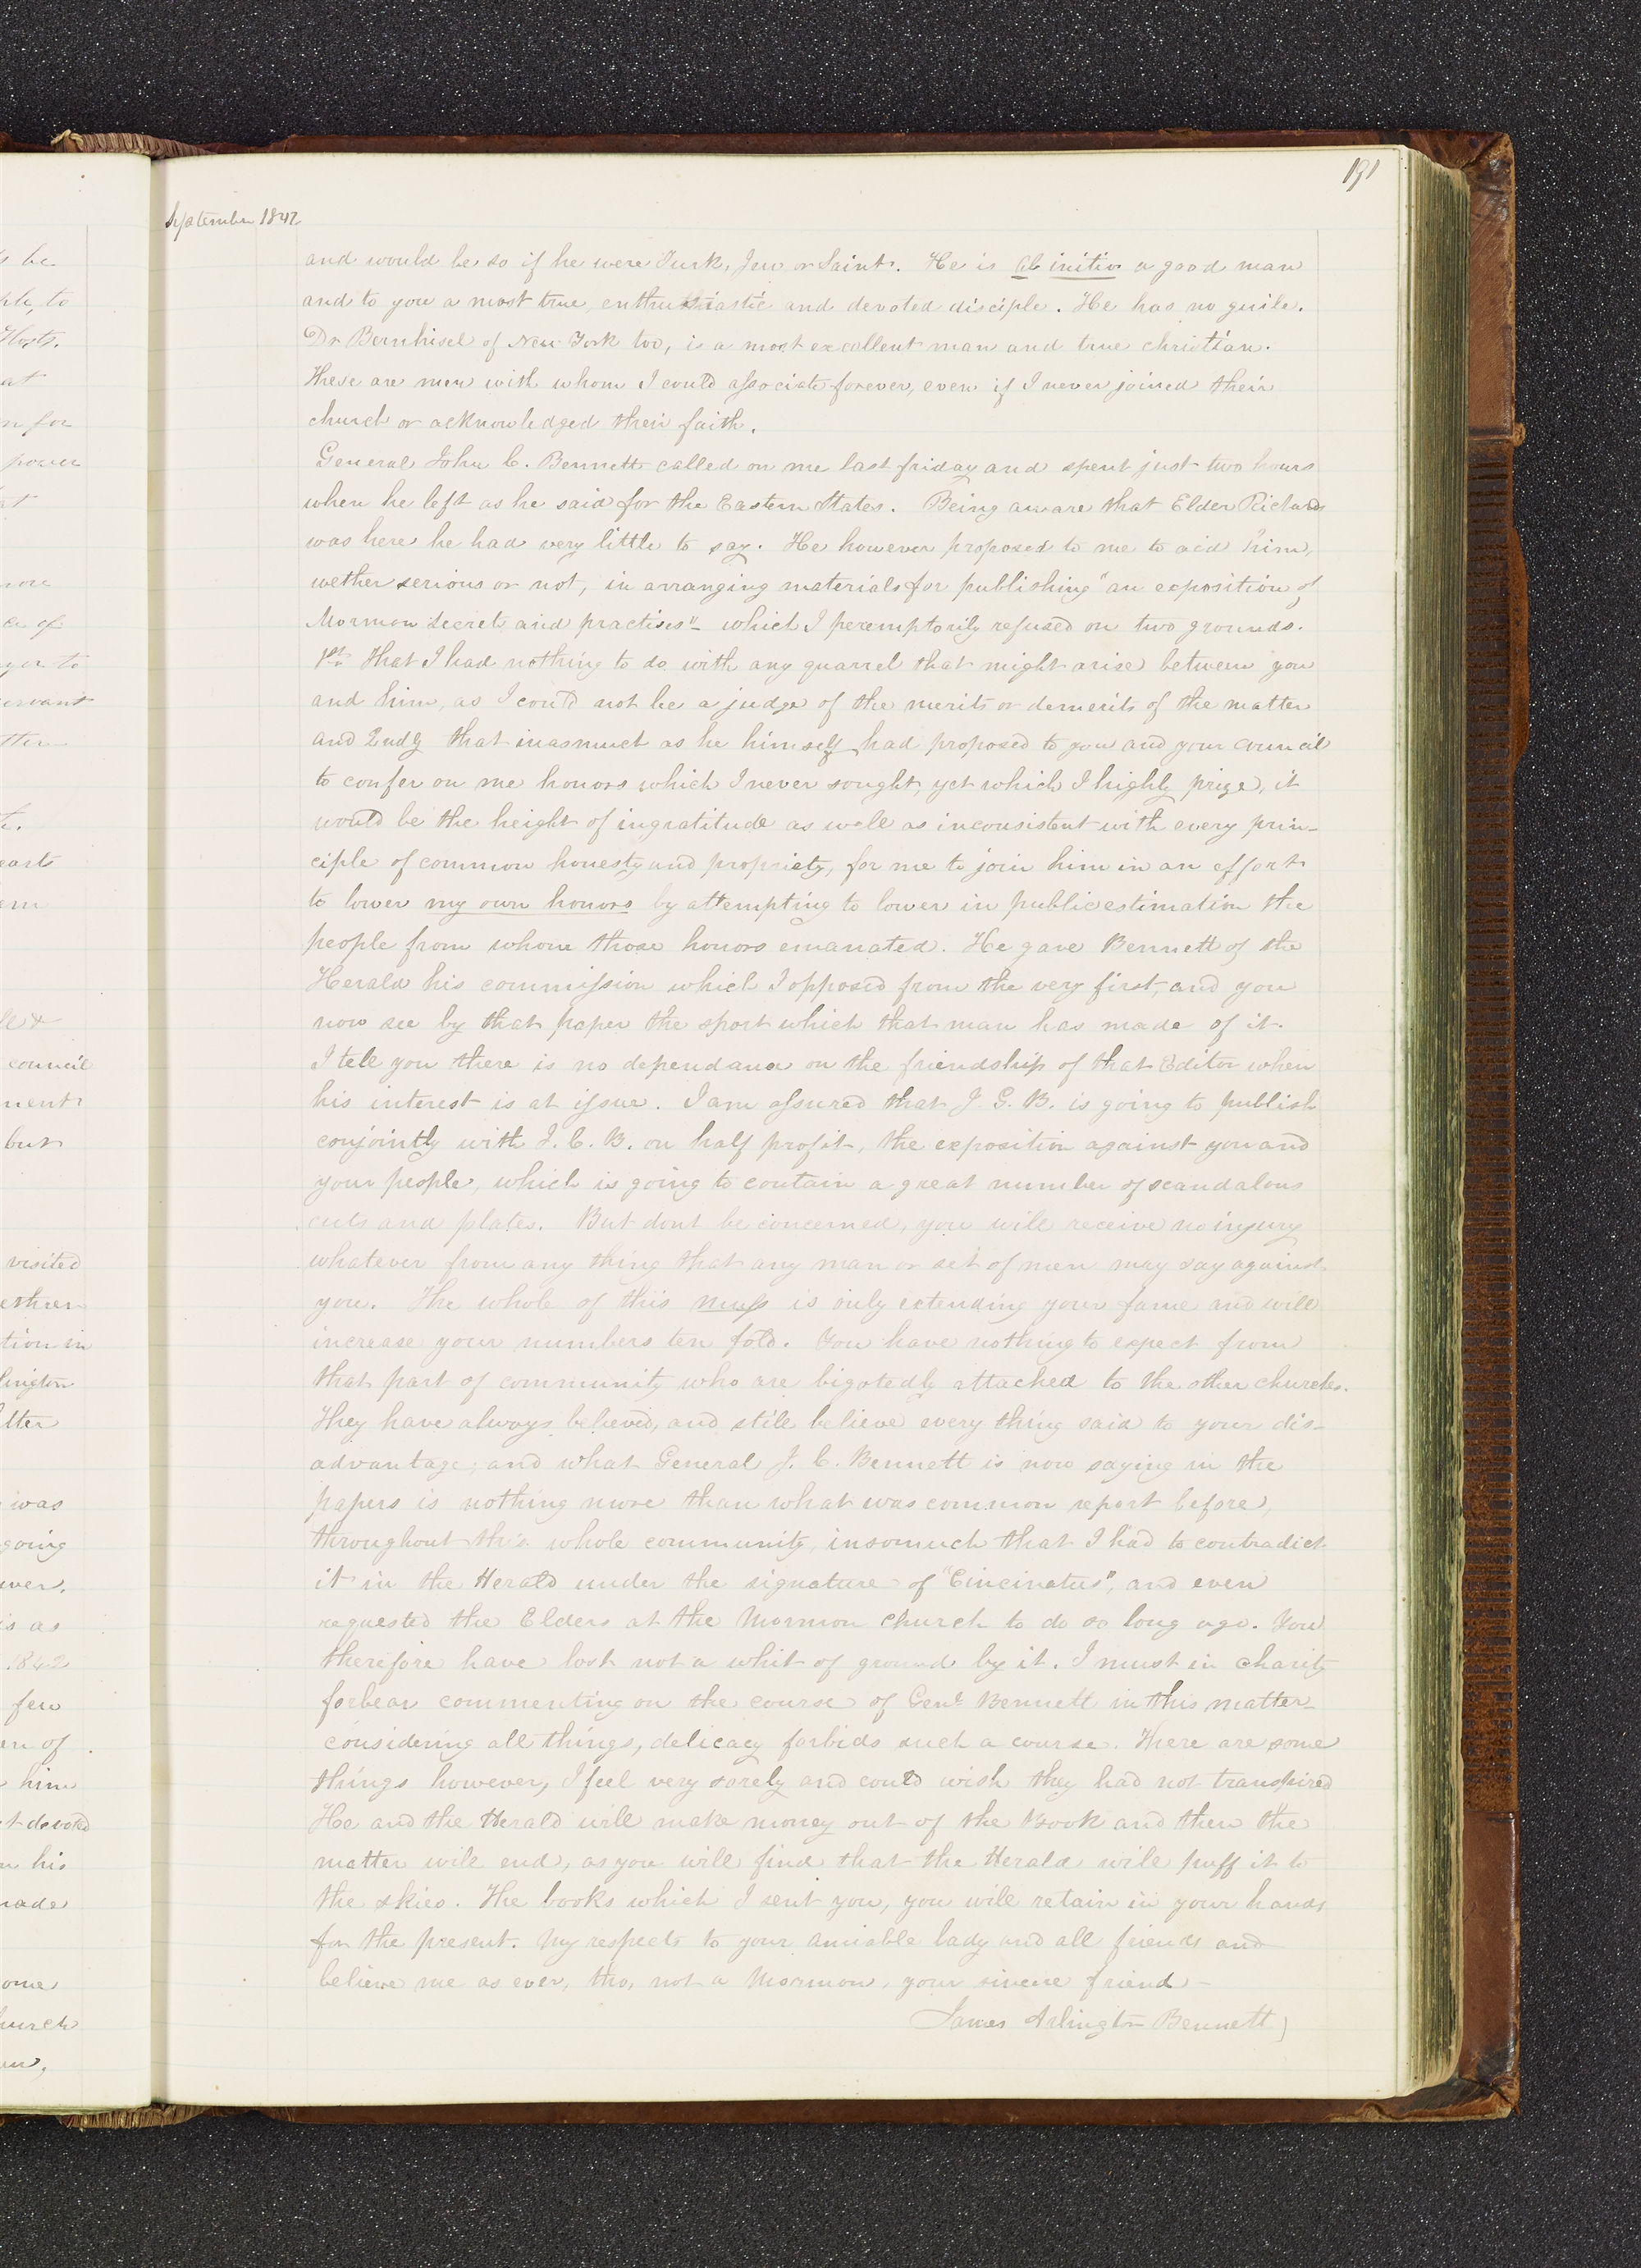 191
September 1842
and would be so if he were Turk, Jew or Saint. He is ab initio a good man
and to you a most true, enthusiastic and devoted disciple. He has no guile.
Dr Bernhisel of New York too, is a most excellent man and true christian.
These are men with whom I could associate forever, even if I never joined their
church or acknowledged their faith.
General John C. Bennett called on me last friday and spent just two hours
when he left as he said for the Eastern States. Being aware that Elder Richards
was here he had very little to say. He however proposed to me to aid him,
wether serious or not, in arranging materials for publishing "an exposition of
Mormon Secret and practises"- which I peremptorily refused on two grounds.
1st. that I had nothing to do with any quarrel that might arise between you
and him, as I could not be a judge of the merits or demerits of the matter
and 2ndly that inasmuch as he himself had proposed to you and your council
to confer on me honors which I never sought, yet which I highly prize, it
would be the height of ingratitude as well as inconsistent with every prin-
ciple of common honesty and propriety, for me to join him in an effort
to lower my own honors by attempting to lower in public estimation the
people from whom those honors emanated. He gave Bennett of the
Herald his commission which I opposed from the very first, and you
now see by that paper the sport which that man has made of it.
I tell you there is no dependance on the friendship of that Editor when
his interest is at issue. I am assured that J. G. B. is going to publish
conjointly with J. C. B. on half profit, the exposition against you and
your people, which is going to contain a great number of scandalous
cuts and plates. But dont be concerned, you will receive no injury
whatever from any thing that any man or set of men may say against
you. The whole of this muss is only extending your fame and will
increase your numbers ten fold. You have nothing to expect from
that part of community who are bigotedly attached to the other churches.
They have always believed, and still believe every thing said to your dis-
advantage; and what General J. C. Bennett is now saying in the
papers is nothing more than what was common report before,
throughout this whole community, insomuch that I had to contradict
it in the Herald under the signature of "Cincinatus", and even
requested the Elders at the Mormon church to do so long ago. You
therefore have lost not a whit of ground by it. I must in charity
forbear commenting on the course of Genl. Bennett in this matter-
considering all things, delicacy forbids such a course. There are some
things however, I feel very sorely and could wish they had not transpired
He and the Herald will make money out of the Book and then the
matter will end, as you will find that the Herald will puff it to
the skies. The books which I sent you, you will retain in your hands
for the present. My respects to your amiable lady and all friends and
believe me as ever, tho, not a Mormon, your sincere friend-
James Arlington Bennett